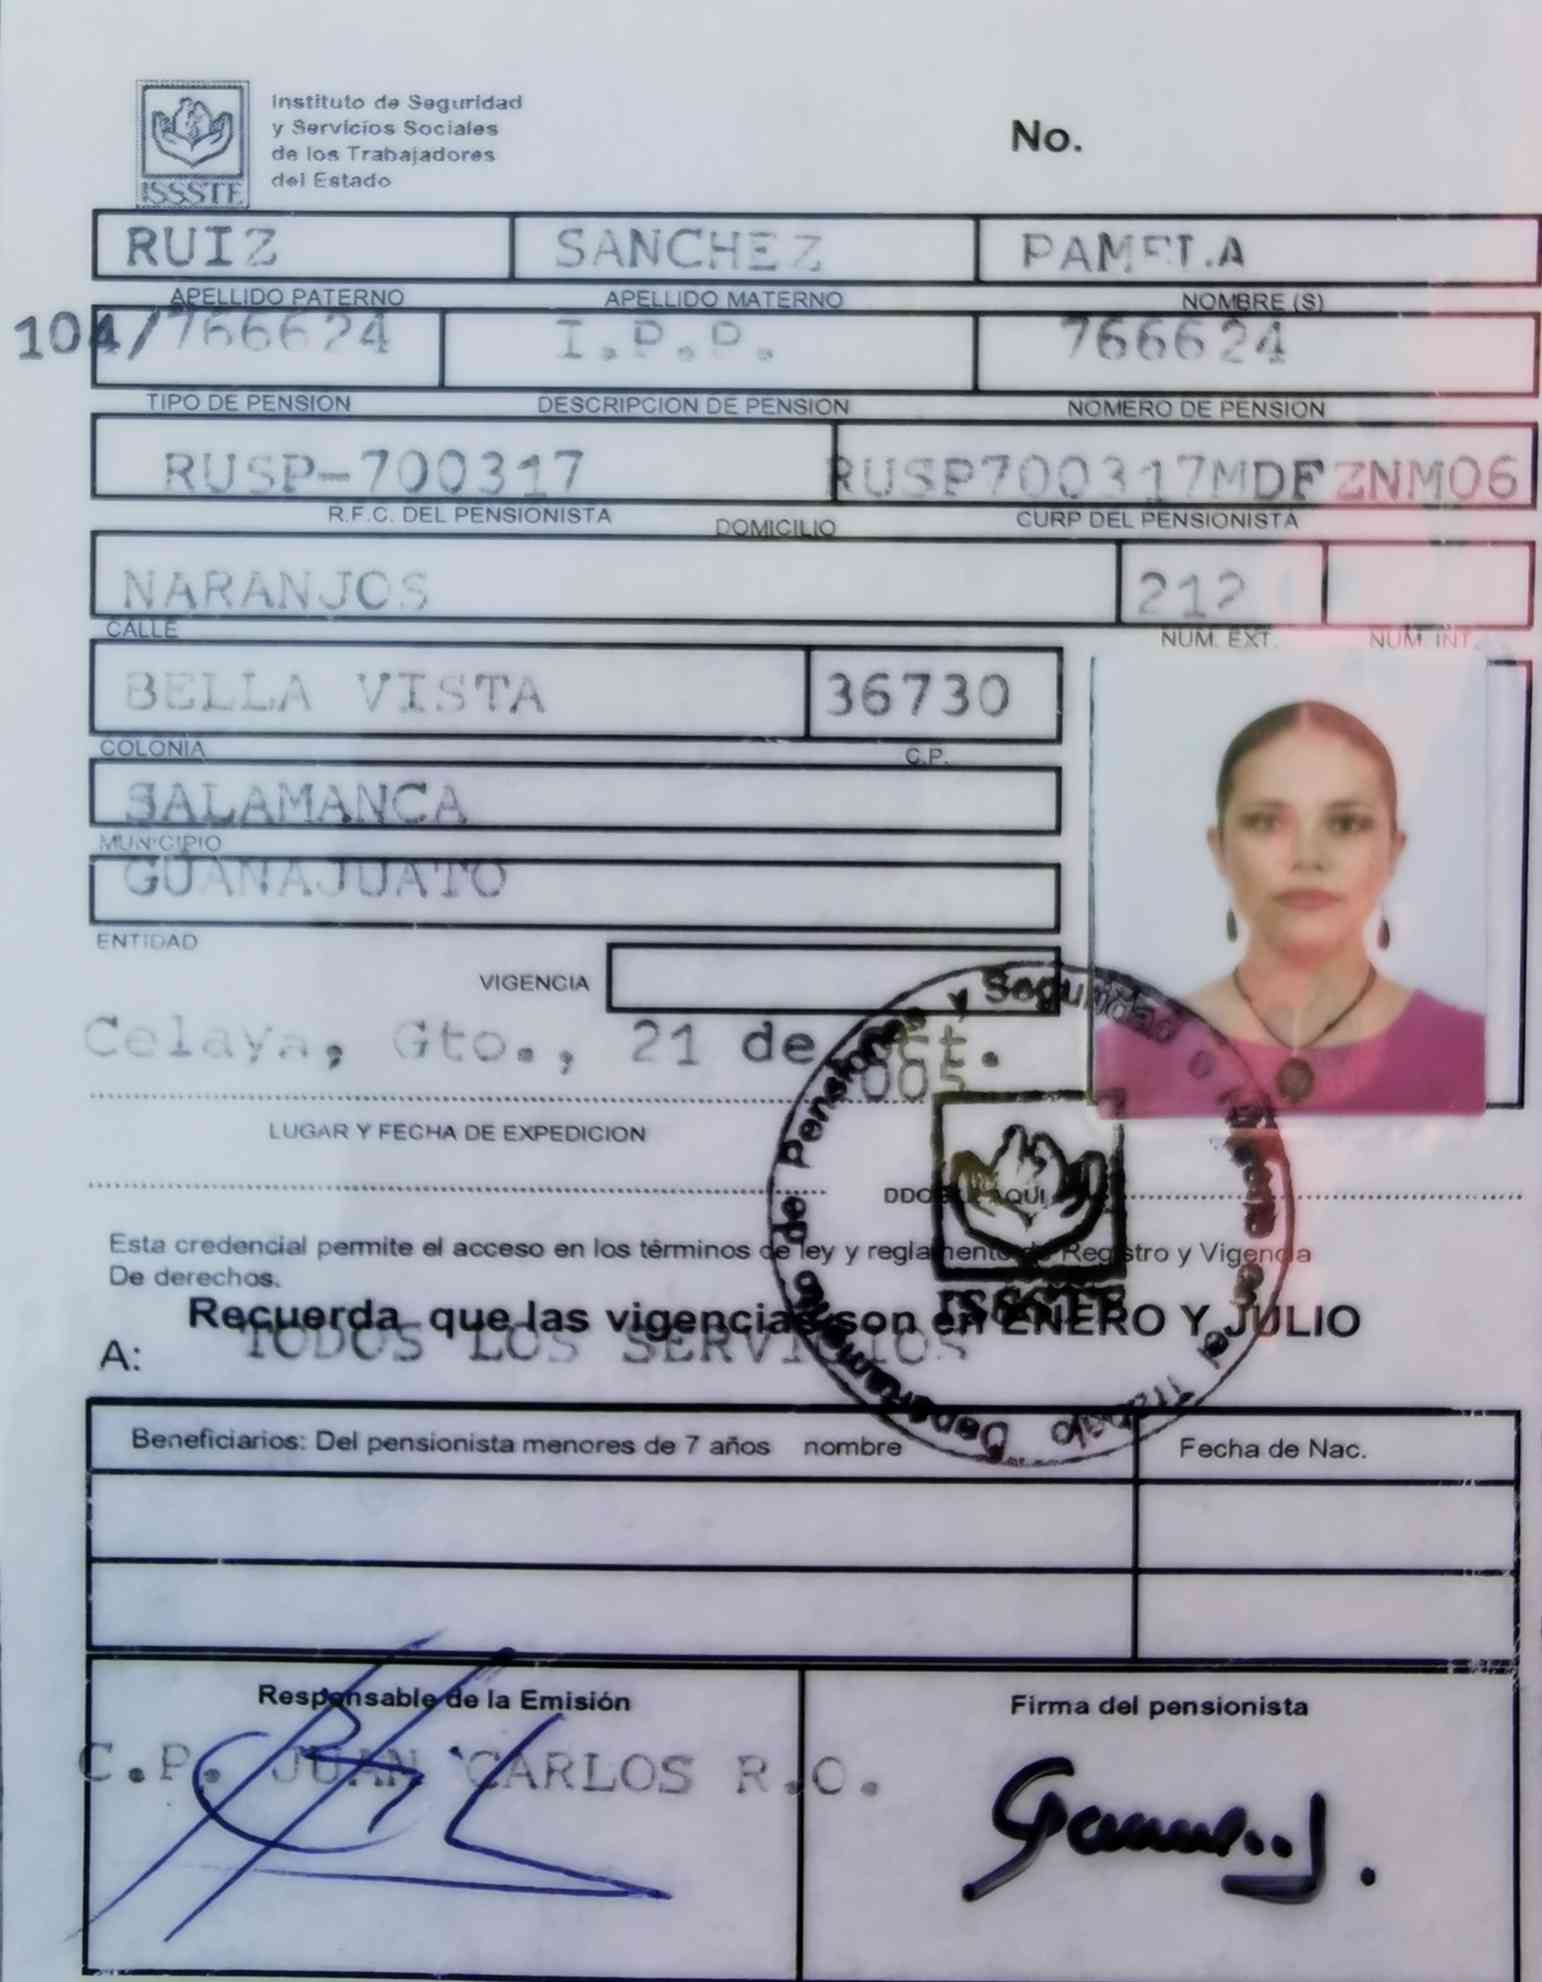 Instituto de Seguridad
y Servicios Sociales
de los Trabajadores
del Estado
ISSSTE
No.
RUIZ SANCHEZ PAMELA
APELLIDO PATERNO APELLIDO MATERNO NOMBRE (S)
104/766624 I.P.P. 766624
TIPO DE PENSION DESCRIPCION DE PENSION NOMERO DE PENSION
RUSP-700317 RUSP700317MDFZNM06
R.F.C. DEL PENSIONISTA CURP DEL PENSIONISTA
DOMICILIO
NARANJOS 212
CALLE NUM. EXT. NUM. INT.
BELLA VISTA 36730
COLONIA C.P.
SALAMANCA
MUNICIPIO
GUANAJUATO
ENTIDAD
VIGENCIA
Celaya, Gto., 21 de Oct.
005
LUGAR Y FECHA DE EXPEDICION
AQUI
Departamento de Pensiones y Seguridad e Higiene en el Trabajo
ISSSTE
Esta credencial permite el acceso en los términos de ley y reglamento de Registro y Vigencia
De derechos.
Recuerda que las vigencias son en ENERO Y JULIO
A: TODOS LOS SERVICIOS
Beneficiarios: Del pensionista menores de 7 años nombre Fecha de Nac.
Responsable de la Emisión Firma del pensionista
C.P. JUAN CARLOS R.O.